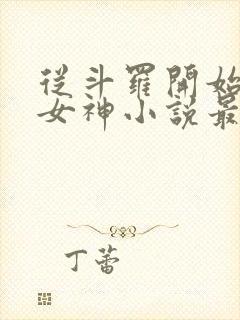 從斗羅開始
女神小說最
丁蕾